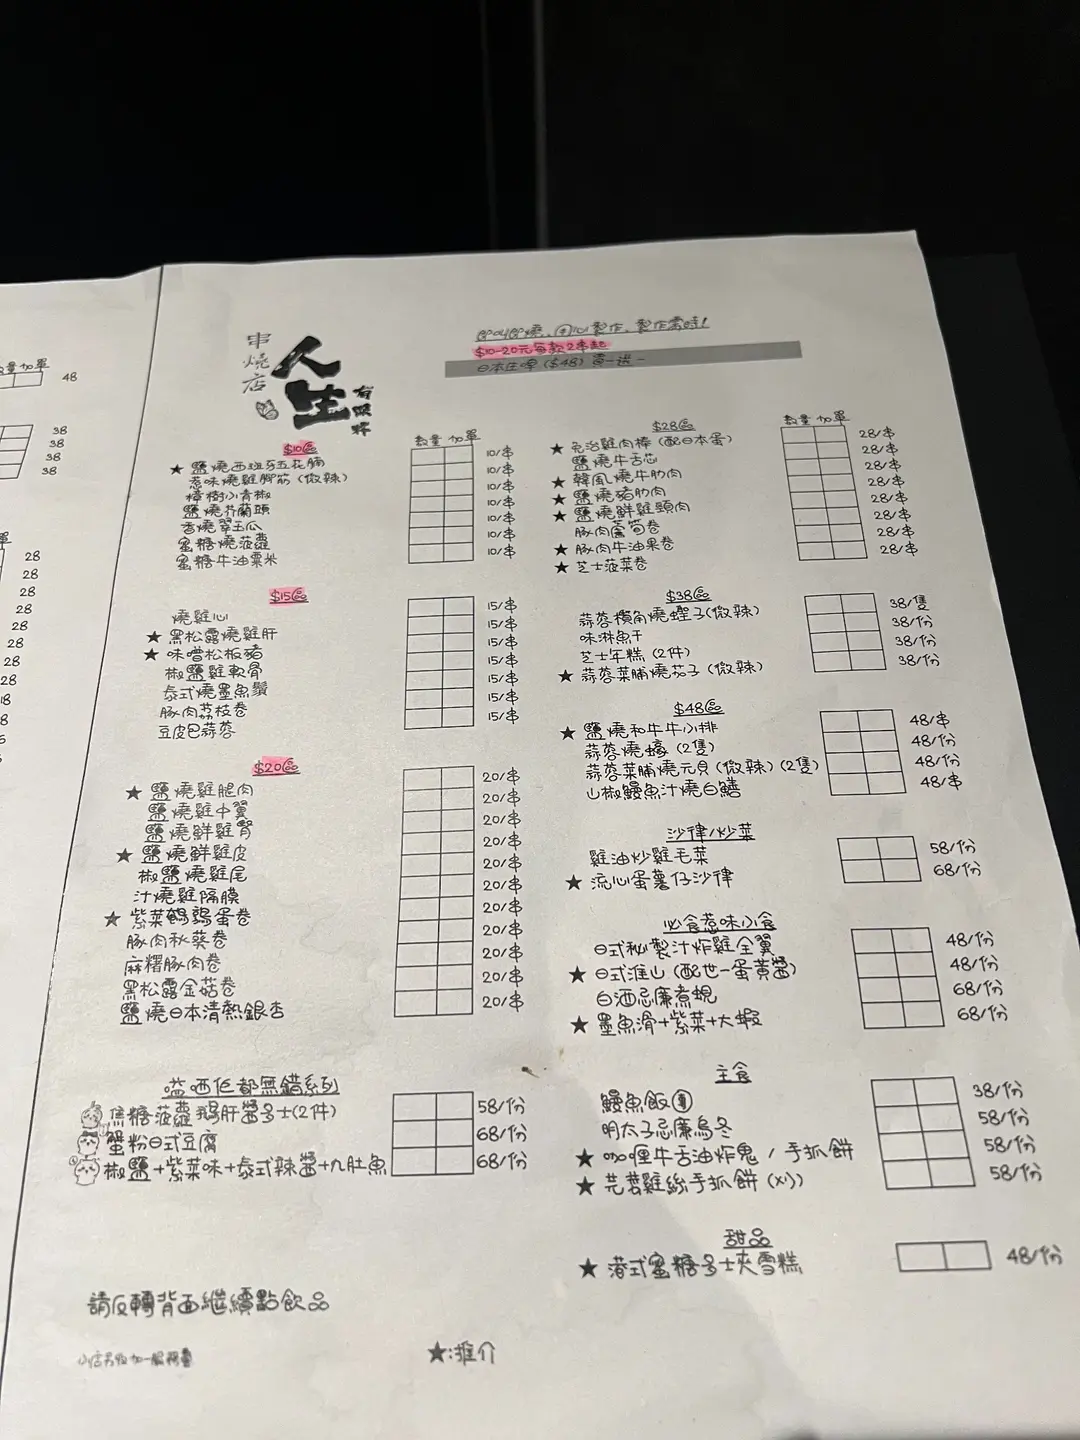 數量 加單
48
38
38
38
38
單
28
28
28
28
28
28
28
28
串燒店
人生
有限串
即叫即燒、用心製作、製作需時!
$10-20元每款2串起
日本生啤 ($48) 買一送一
數量 加單
$10區
★ 鹽燒西班牙五花腩 10/串
惹味燒雞腳筋 (微辣) 10/串
樟樹小青椒 10/串
鹽燒芥蘭頭 10/串
香燒翠玉瓜 10/串
蜜糖燒菠蘿 10/串
蜜糖牛油粟米 10/串
$15區
燒雞心 15/串
★ 黑松露燒雞肝 15/串
★ 味噌松板豬 15/串
椒鹽雞軟骨 15/串
泰式燒墨魚鬚 15/串
豚肉荔枝卷 15/串
豆皮包蒜蓉 15/串
$20區
★ 鹽燒雞腿肉 20/串
鹽燒雞中翼 20/串
鹽燒鮮雞腎 20/串
★ 鹽燒鮮雞皮 20/串
椒鹽燒雞尾 20/串
汁燒雞隔膜 20/串
★ 紫菜鵪鶉蛋卷 20/串
豚肉秋葵卷 20/串
麻糬豚肉卷 20/串
黑松露金菇卷 20/串
鹽燒日本清熱銀杏 20/串
嗌哂佢都無錯系列
焦糖菠蘿鵝肝醬多士(2件) 58/份
蟹粉日式豆腐 68/份
椒鹽+紫菜味+泰式辣醬+九肚魚 68/份
請反轉背面繼續點飲品
小店另收加一服務費
數量 加單
$28區
★ 免治雞肉棒 (配日本蛋) 28/串
鹽燒牛舌芯 28/串
★ 韓風燒牛肋肉 28/串
★ 鹽燒豬肋肉 28/串
★ 鹽燒鮮雞頸肉 28/串
豚肉蘆筍卷 28/串
★ 豚肉牛油果卷 28/串
★ 芝士菠菜卷 28/串
$38區
蒜蓉欖角燒蟶子(微辣) 38/隻
味淋魚干 38/份
芝士年糕 (2件) 38/份
★ 蒜蓉菜脯燒茄子 (微辣) 38/份
$48區
★ 鹽燒和牛牛小排 48/串
蒜蓉燒蠔 (2隻) 48/份
蒜蓉菜脯燒元貝 (微辣) (2隻) 48/份
山椒鰻魚汁燒白鱔 48/串
沙律/炒菜
雞油炒雞毛菜 58/份
★ 流心蛋薯仔沙律 68/份
必食惹味小食
日式秘製汁炸雞全翼 48/份
★ 日式淮山 (配世一蛋黃醬) 48/份
白酒忌廉煮蜆 68/份
★ 墨魚滑+紫菜+大蝦 68/份
主食
鰻魚飯 38/份
明太子忌廉烏冬 58/份
★ 咖喱牛舌油炸鬼 / 手抓餅 58/份
★ 芫茜雞絲手抓餅 (刈) 58/份
甜品
★ 港式蜜糖多士夾雪糕 48/份
★:推介